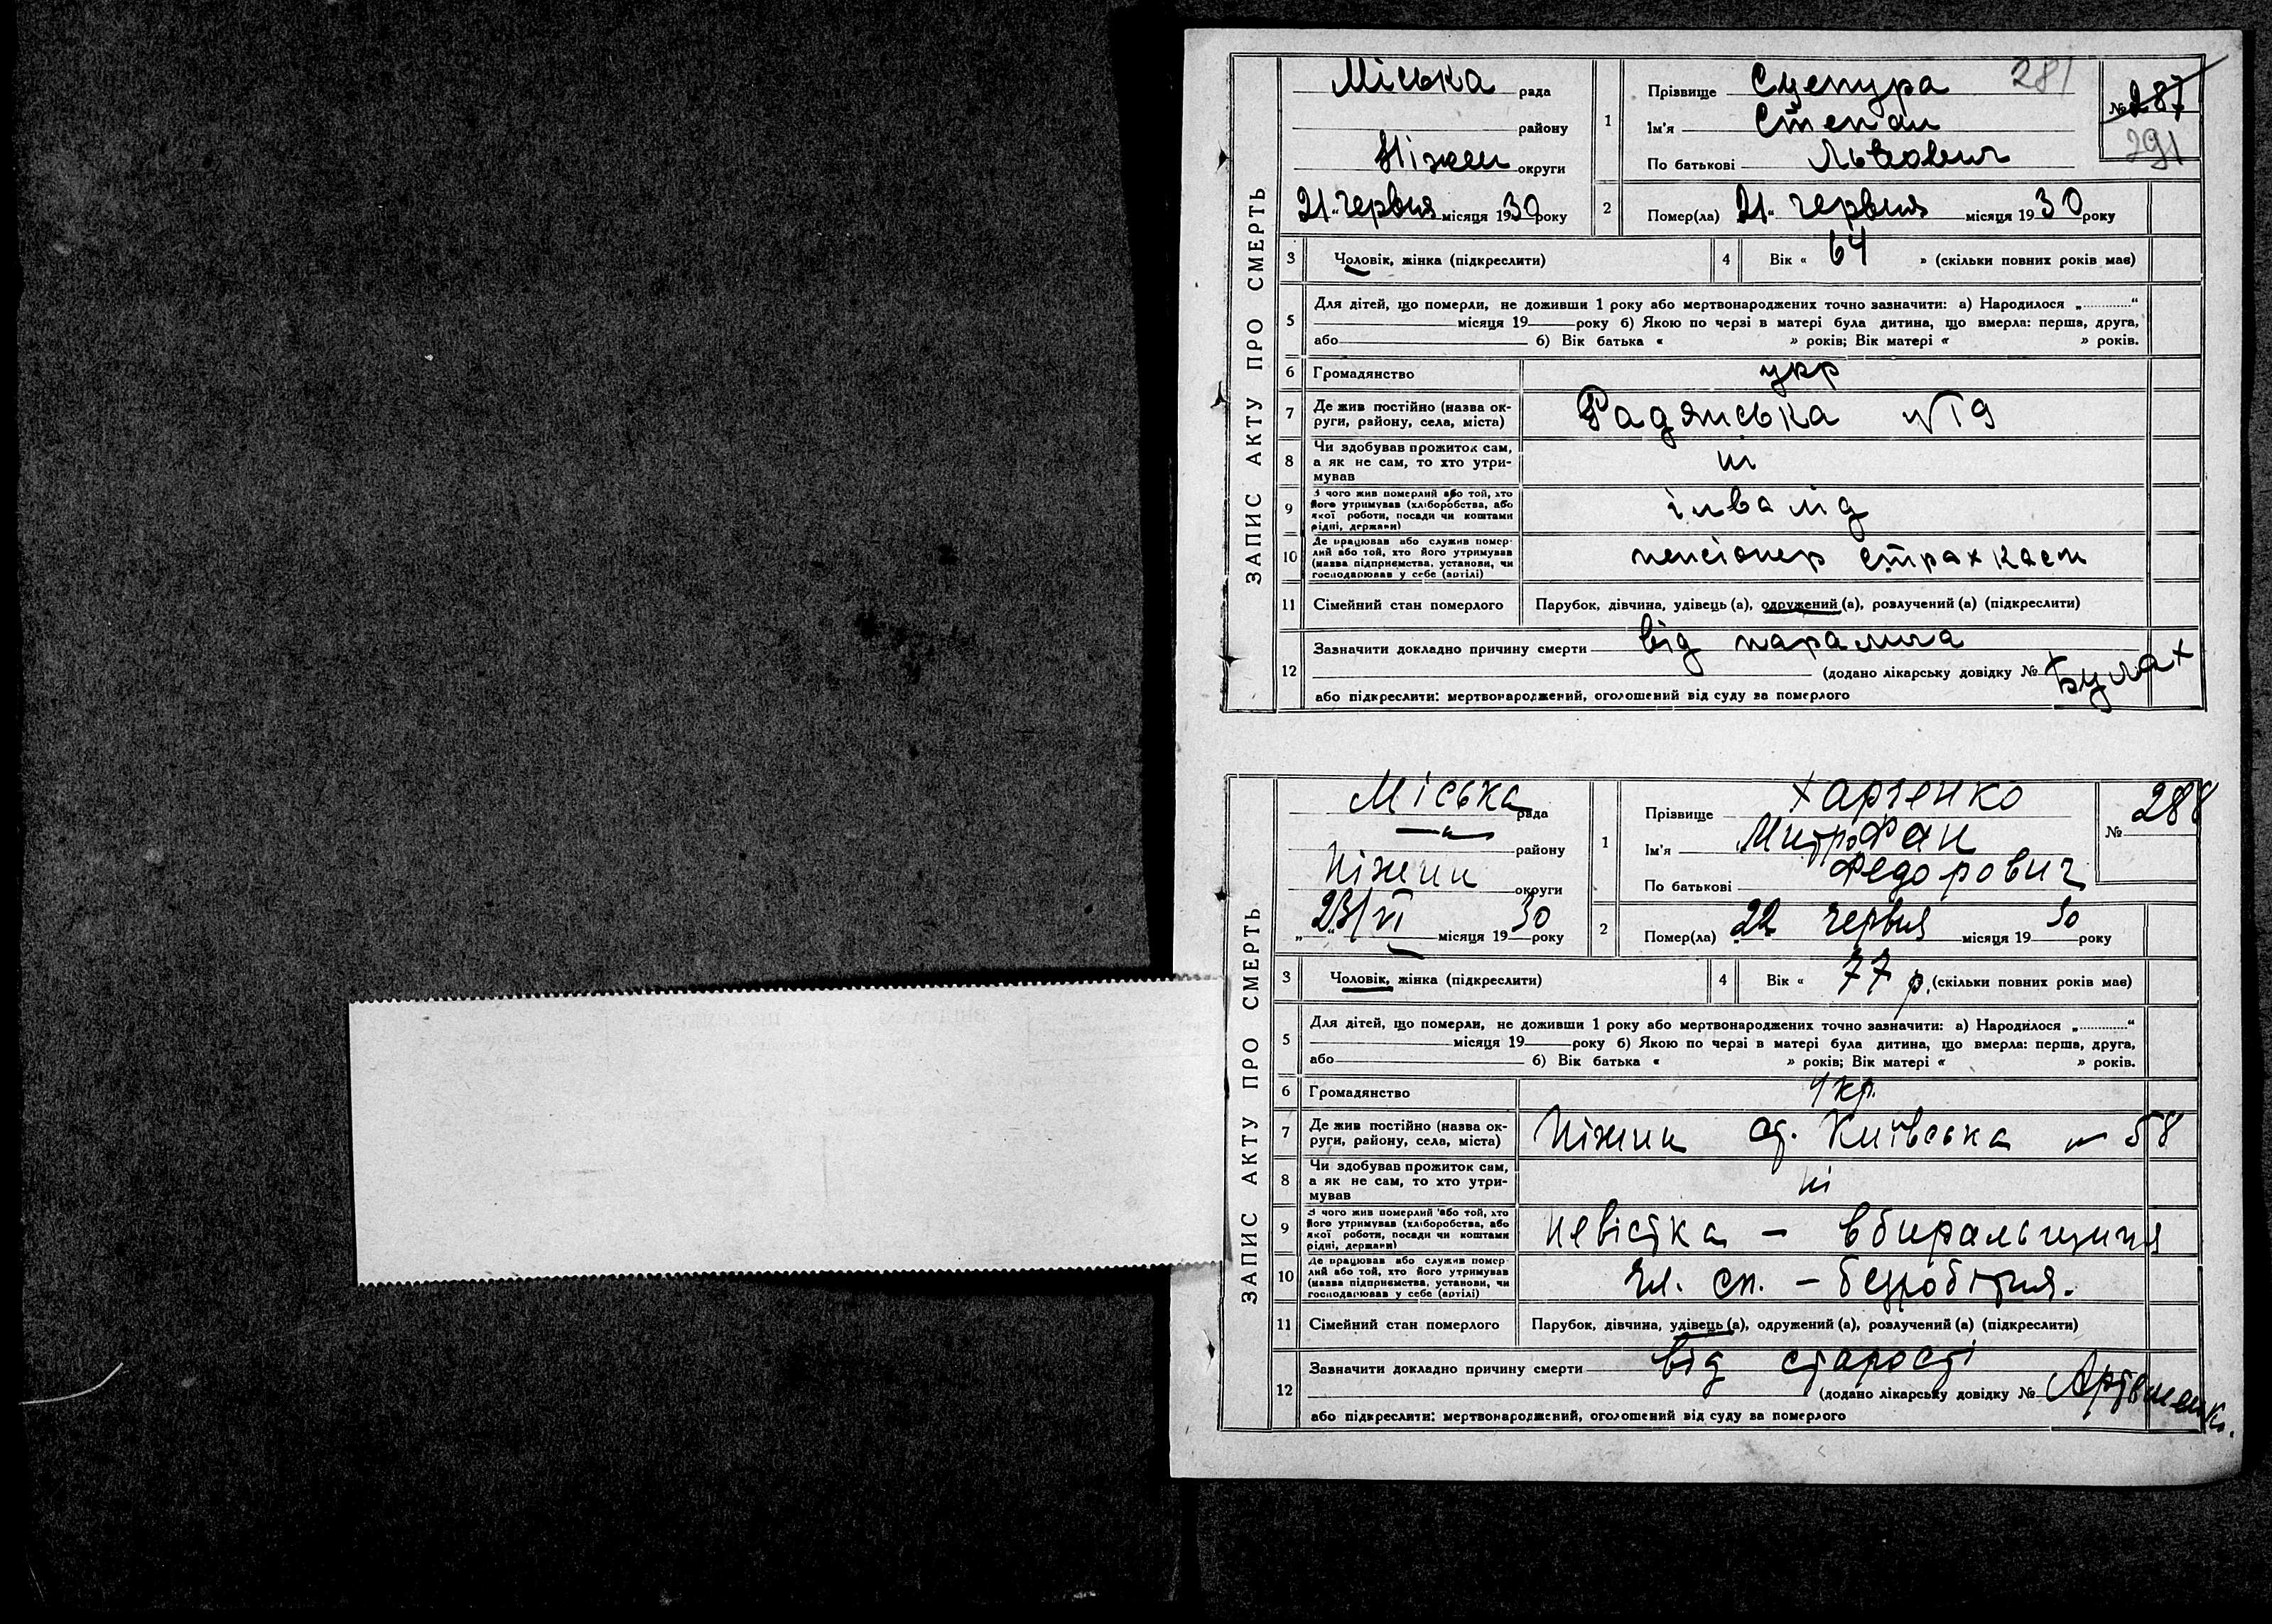 ЗАПИС АКТУ ПРО СМЕРТЬ
Міська рада
району
Ніжен округи
21 червня місяця 1930 року
1
Прізвище Сцепура 281
Ім'я Степан
По батькові Львович
№ 287
291
2
Помер(ла) 21 червня місяця 1930 року
3 Чоловік, жінка (підкреслити)
4 Вік « 64 » (скільки повних років має)
5
Для дітей, що померли, не доживши 1 року або мертвонароджених точно зазначити: а) Народилося „ “
місяця 19 року б) Якою по черзі в матері була дитина, що вмерла: перша, друга,
або б) Вік батька « » років; Вік матері « » років.
6 Громадянство укр
7 Де жив постійно (назва ок-
руги, району, села, міста) Радянська №19
8 Чи здобував прожиток сам,
а як не сам, то хто утри-
мував ні
9 З чого жив померлий або той, хто
його утримував (хліборобства, або
якої роботи, посади чи коштами
рідні, держави) інвалід
10 Де працював або служив помер-
лий або той, хто його утримував
(назва підприємства, установи, чи
господарював у себе (артілі) пенсіонер страхкаси
11 Сімейний стан померлого Парубок, дівчина, удівець (а), одружений (а), розлучений (а) (підкреслити)
12
Зазначити докладно причину смерти від параліча
(додано лікарську довідку № Булах
або підкреслити: мертвонароджений, оголошений від суду за померлого
ЗАПИС АКТУ ПРО СМЕРТЬ
Міська рада
району
Ніжин округи
„23/VI місяця 1930 року
1
Прізвище Харченко
Ім'я Митрофан
По батькові Федорович
№ 288
2
Помер(ла) 22 червня місяця 1930 року
3 Чоловік, жінка (підкреслити)
4 Вік « 77 р. (скільки повних років має)
5
Для дітей, що померли, не доживши 1 року або мертвонароджених точно зазначити: а) Народилося „ “
місяця 19 року б) Якою по черзі в матері була дитина, що вмерла: перша, друга,
або б) Вік батька « » років; Вік матері « » років.
6 Громадянство укр.
7 Де жив постійно (назва ок-
руги, району, села, міста) Ніжин ст. Київська № 58
8 Чи здобував прожиток сам,
а як не сам, то хто утри-
мував ні
9 З чого жив померлий або той, хто
його утримував (хліборобства, або
якої роботи, посади чи коштами
рідні, держави) невістка – вбиральщиця
10 Де працював або служив помер-
лий або той, хто його утримував
(назва підприємства, установи, чи
господарював у себе (артілі) чл. сп. – безробітня.
11 Сімейний стан померлого Парубок, дівчина, удівець (а), одружений (а), розлучений (а) (підкреслити)
12
Зазначити докладно причину смерти від старості
(додано лікарську довідку №
або підкреслити: мертвонароджений, оголошений від суду за померлого